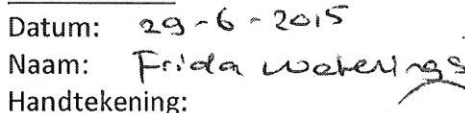 Datum: 29-6-2015
Naam: Frida Weterings
Handtekening: